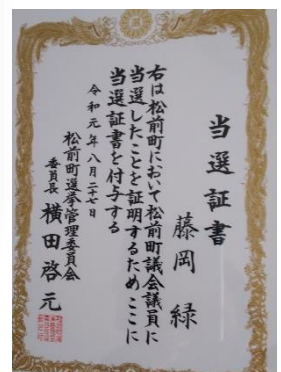 当選証書
藤岡緑
右は松前町において松前町議会議員に
当選したことを証明するためここに
当選証書を付与する
令和元年八月二十七日
松前町選挙管理委員会
委員長 横田啓元